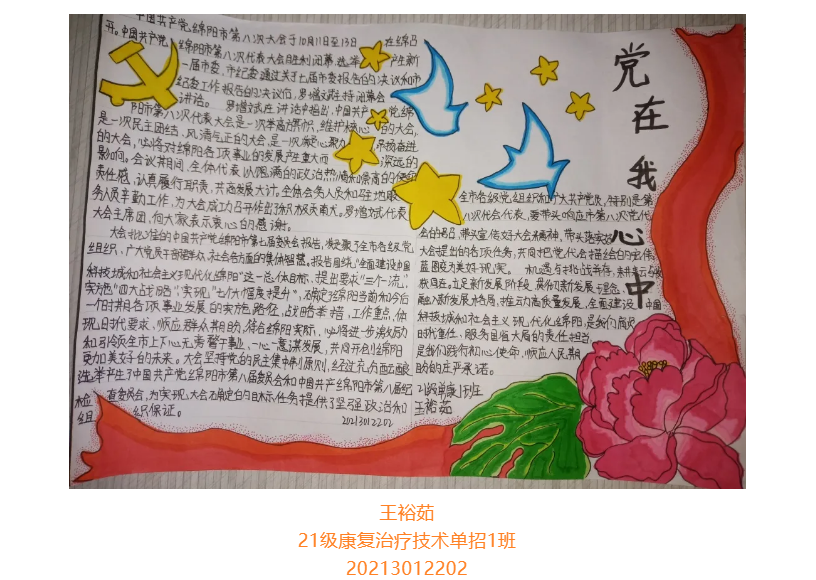 党在我心中
中国共产党绵阳市第八次大会于10月11日至13日
在绵召
开。中国共产党
绵阳市第八次代表大会胜利闭幕,选举
产生新
一届市委、市纪委,通过关于七届市委报告的决议和市
纪委工作报告的决议后,罗增斌主持闭幕会
讲话。
罗增斌在讲话中指出,中国共产
党绵
阳市第八次代表大会是一次举高旗帜,维护核心
的大会,
是一次民主团结,风清气正的大会,是一次凝心聚力
的大会,必将对绵阳各项事业的发展产生重大而
深远的
影响。会议期间,全体代表以饱满的政治热情和崇高的使命
责任感,认真履行职责,共商发展大计。全体会务人员和驻地服
务人员辛勤工作,为大会成功召开作出了积极贡献。罗增斌代表
大会主席团,向大家表示衷心的感谢。
大会批准的中国共产党绵阳市第七届委员会报告,凝聚了全市各级党
组织、广大党员干部群众、社会各方面的集体智慧。报告围绕“全面建设中国
科技城和社会主义现代化绵阳”这一总体目标,提出要求“三个一流”
实施“四大战略”,实现“七个大幅度提升”,确定绵阳当前和今后
一个时期各项事业发展的实施路径,战略举措,工作重点,体
现时代要求、顺应群众期盼,符合绵阳实际,必将进一步激励
和引领全市上下心无旁骛干事业,一心一意谋发展,共同开创绵阳
更加美好的未来。大会坚持党的民主集中制原则,经过充分酝酿
选举产生了中国共产党绵阳市第八届委员会和中国共产绵阳市第八届纪
检
查委员会,为实现大会确定的目标任务提供了坚强政治和
组
织保证。
20213012202
全市各级党组织和广大共产党员,特别是第
八次代会代表,要带头响应市第八次党代
会的召
大会提出的各项任务,共同把党代会描绘的宏伟
蓝图变为美好现实。机遇与挑战并存,
融入新发展格局,推动高质量发展,全面建设
中国
科技城和社会主义现代化绵阳,是我们肩负
时代重任,服务国省大局的责任担当
是我们践行初心使命,顺应人民期
盼的庄严承诺。
21级单康1班
王裕茹
王裕茹
21级康复治疗技术单招1班
20213012202